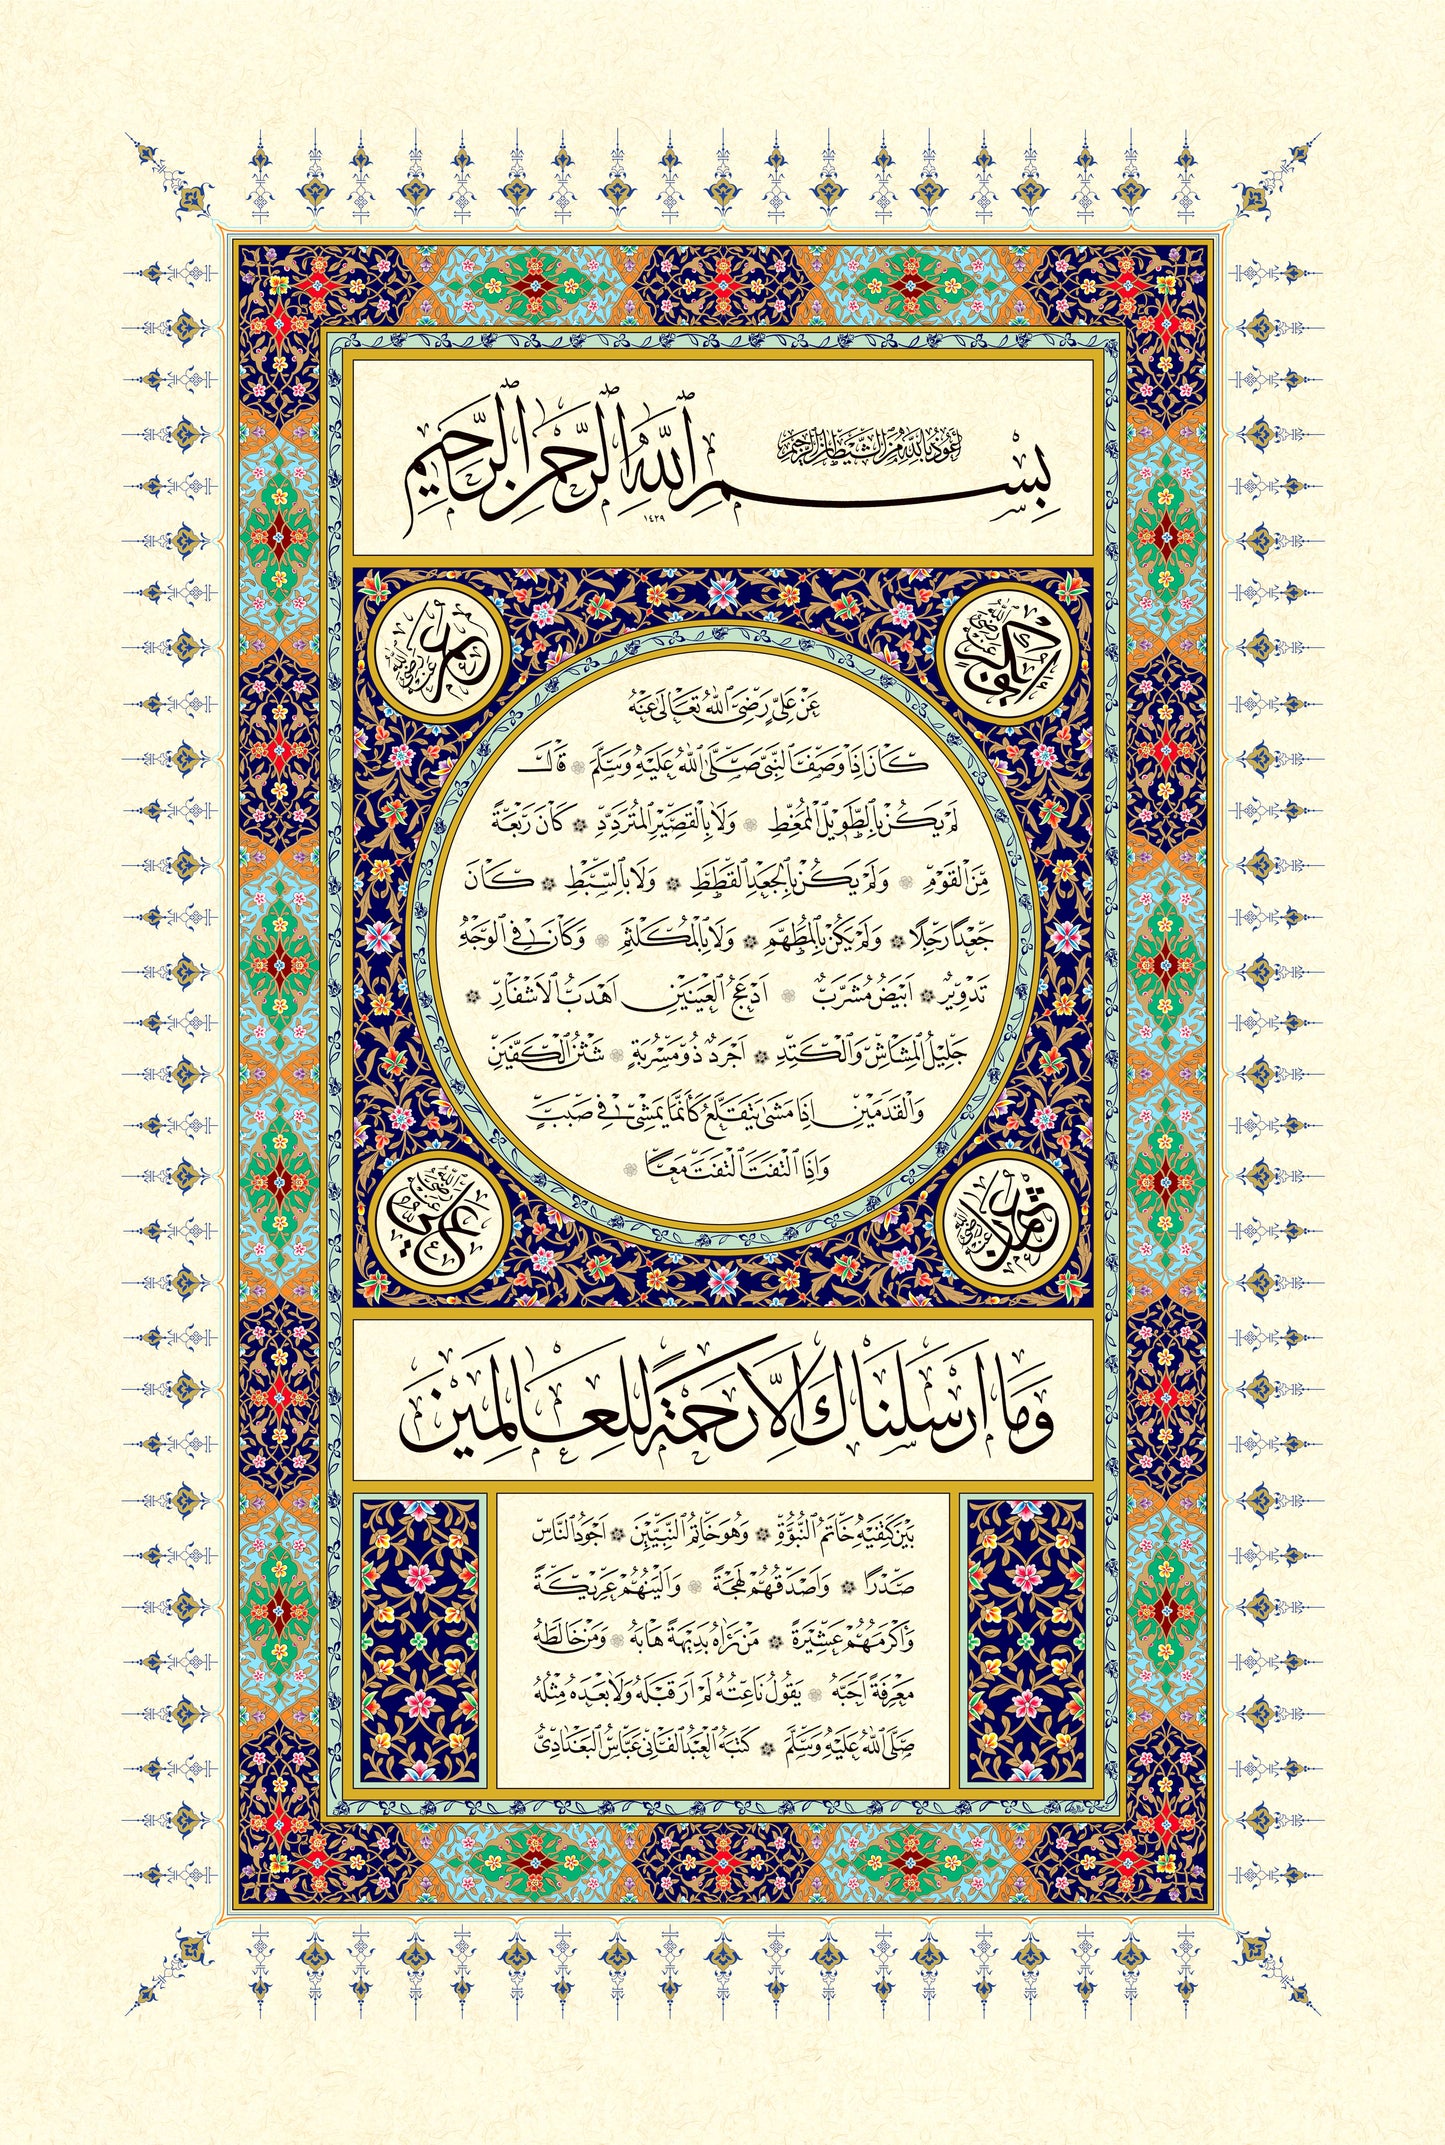 أَعُوذُ بِاللّٰهِ مِنَ الشَّيْطَانِ الرَّجِيمِ
بِسْمِ اللّٰهِ الرَّحْمٰنِ الرَّحِيمِ
١٤٢٩
ابوبكر رضي الله عنه
عمر رضي الله عنه
عَنْ عَلِيٍّ رَضِيَ اللّٰهُ تَعَالَى عَنْهُ
كَانَ إِذَا وَصَفَ النَّبِيَّ صَلَّى اللّٰهُ عَلَيْهِ وَسَلَّمَ قَالَ
لَمْ يَكُنْ بِالطَّوِيلِ الْمُمَغَّطِ وَلَا بِالْقَصِيرِ الْمُتَرَدِّدِ كَانَ رَبْعَةً
مِنَ الْقَوْمِ وَلَمْ يَكُنْ بِالْجَعْدِ الْقَطَطِ وَلَا بِالسَّبْطِ كَانَ
جَعْدًا رَجِلًا وَلَمْ يَكُنْ بِالْمُطَهَّمِ وَلَا بِالْمُكَلْثَمِ وَكَانَ فِي الْوَجْهِ
تَدْوِيرٌ أَبْيَضُ مُشْرَبٌ أَدْعَجُ الْعَيْنَيْنِ أَهْدَبُ الْأَشْفَارِ
جَلِيلُ الْمُشَاشِ وَالْكَتَدِ أَجْرَدُ ذُو مَسْرُبَةٍ شَثْنُ الْكَفَّيْنِ
وَالْقَدَمَيْنِ إِذَا مَشَى يَتَقَلَّعُ كَأَنَّمَا يَمْشِي فِي صَبَبٍ
وَإِذَا الْتَفَتَ الْتَفَتَ مَعًا
عثمان رضي الله عنه
علي رضي الله عنه
وَمَا أَرْسَلْنَاكَ إِلَّا رَحْمَةً لِلْعَالَمِينَ
بَيْنَ كَتِفَيْهِ خَاتَمُ النُّبُوَّةِ وَهُوَ خَاتَمُ النَّبِيِّينَ أَجْوَدُ النَّاسِ
صَدْرًا وَأَصْدَقُهُمْ لَهْجَةً وَأَلْيَنُهُمْ عَرِيكَةً
وَأَكْرَمُهُمْ عَشِيرَةً مَنْ رَآهُ بَدِيهَةً هَابَهُ وَمَنْ خَالَطَهُ
مَعْرِفَةً أَحَبَّهُ يَقُولُ نَاعِتُهُ لَمْ أَرَ قَبْلَهُ وَلَا بَعْدَهُ مِثْلَهُ
صَلَّى اللّٰهُ عَلَيْهِ وَسَلَّمَ كَتَبَهُ الْعَبْدُ الْفَانِي عَبَّاسُ الْبَغْدَادِيُّ